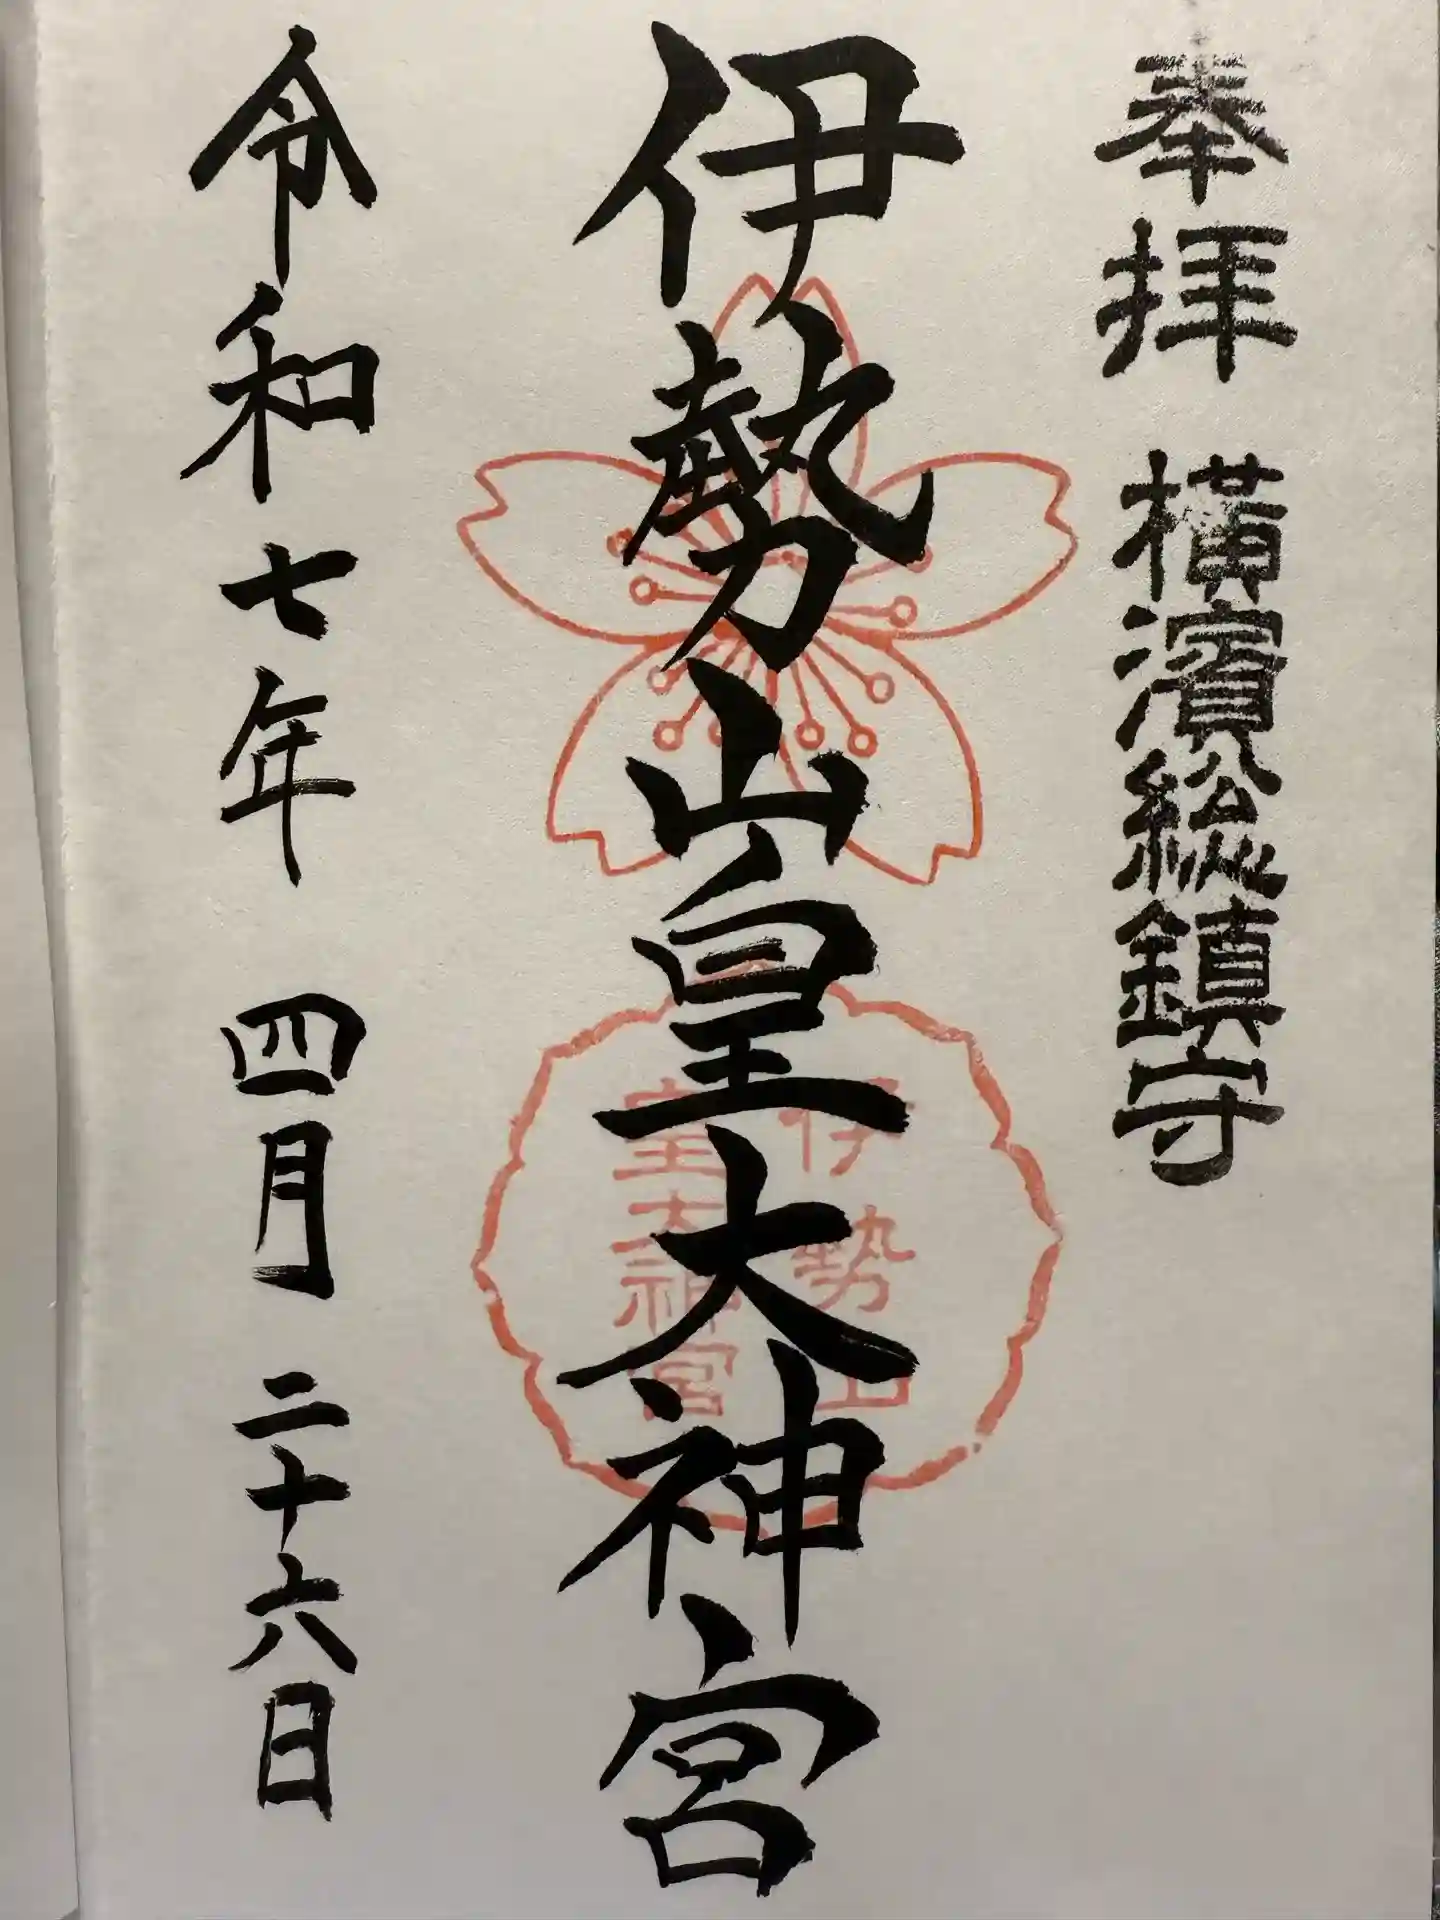 奉拝 横濱総鎮守
伊勢山皇大神宮
伊勢山
皇大神宮
令和七年 四月 二十六日